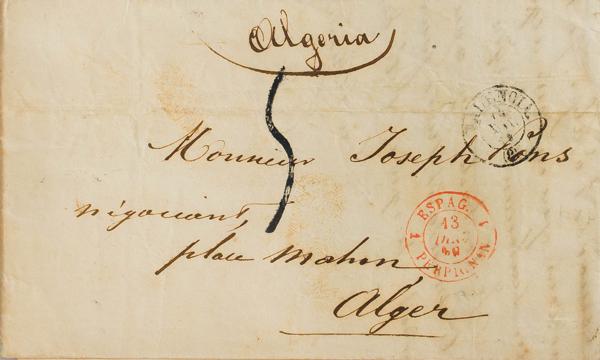 Algeria
5
Monsieur Joseph Pons
négociant,
place Mahon,
Alger
1 ESPAG. 1
13
60
PERPIGNAN